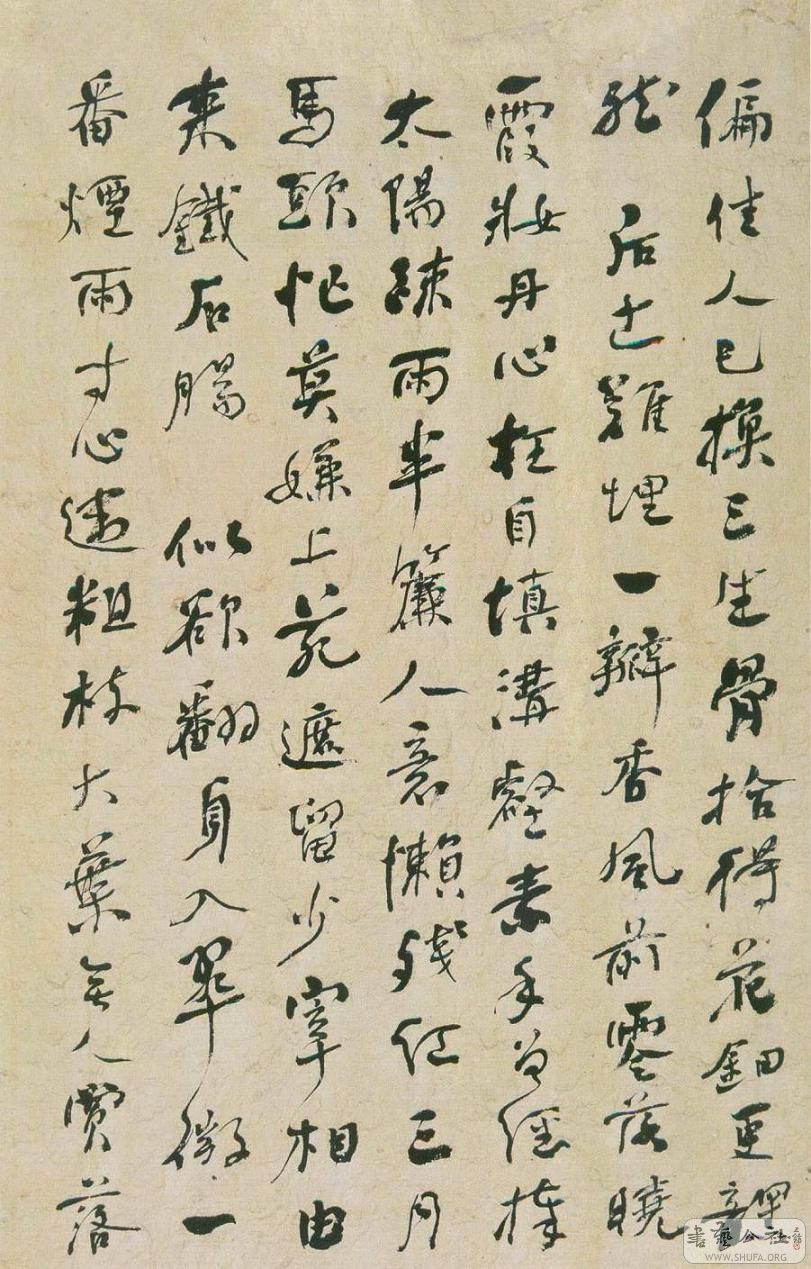 偏佳人已換三生骨拾得花鈿更
然 后土難埋一瓣香風前零落曉
霞妝丹心枉自填溝壑素手曾經捧
太陽疎雨半簾人意懶殘紅三月
馬頭忙莫嫌上苑遮留少宰相由
来鐵石腸 似欲翻身入翠微一
番煙雨寸心違粗枝大葉無人賞落
書藝公社
WWW.SHUFA.ORG